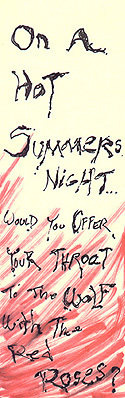 On A
Hot
Summers
Night...
Would You Offer
Your Throat
To The Wolf
With The
Red
Roses?